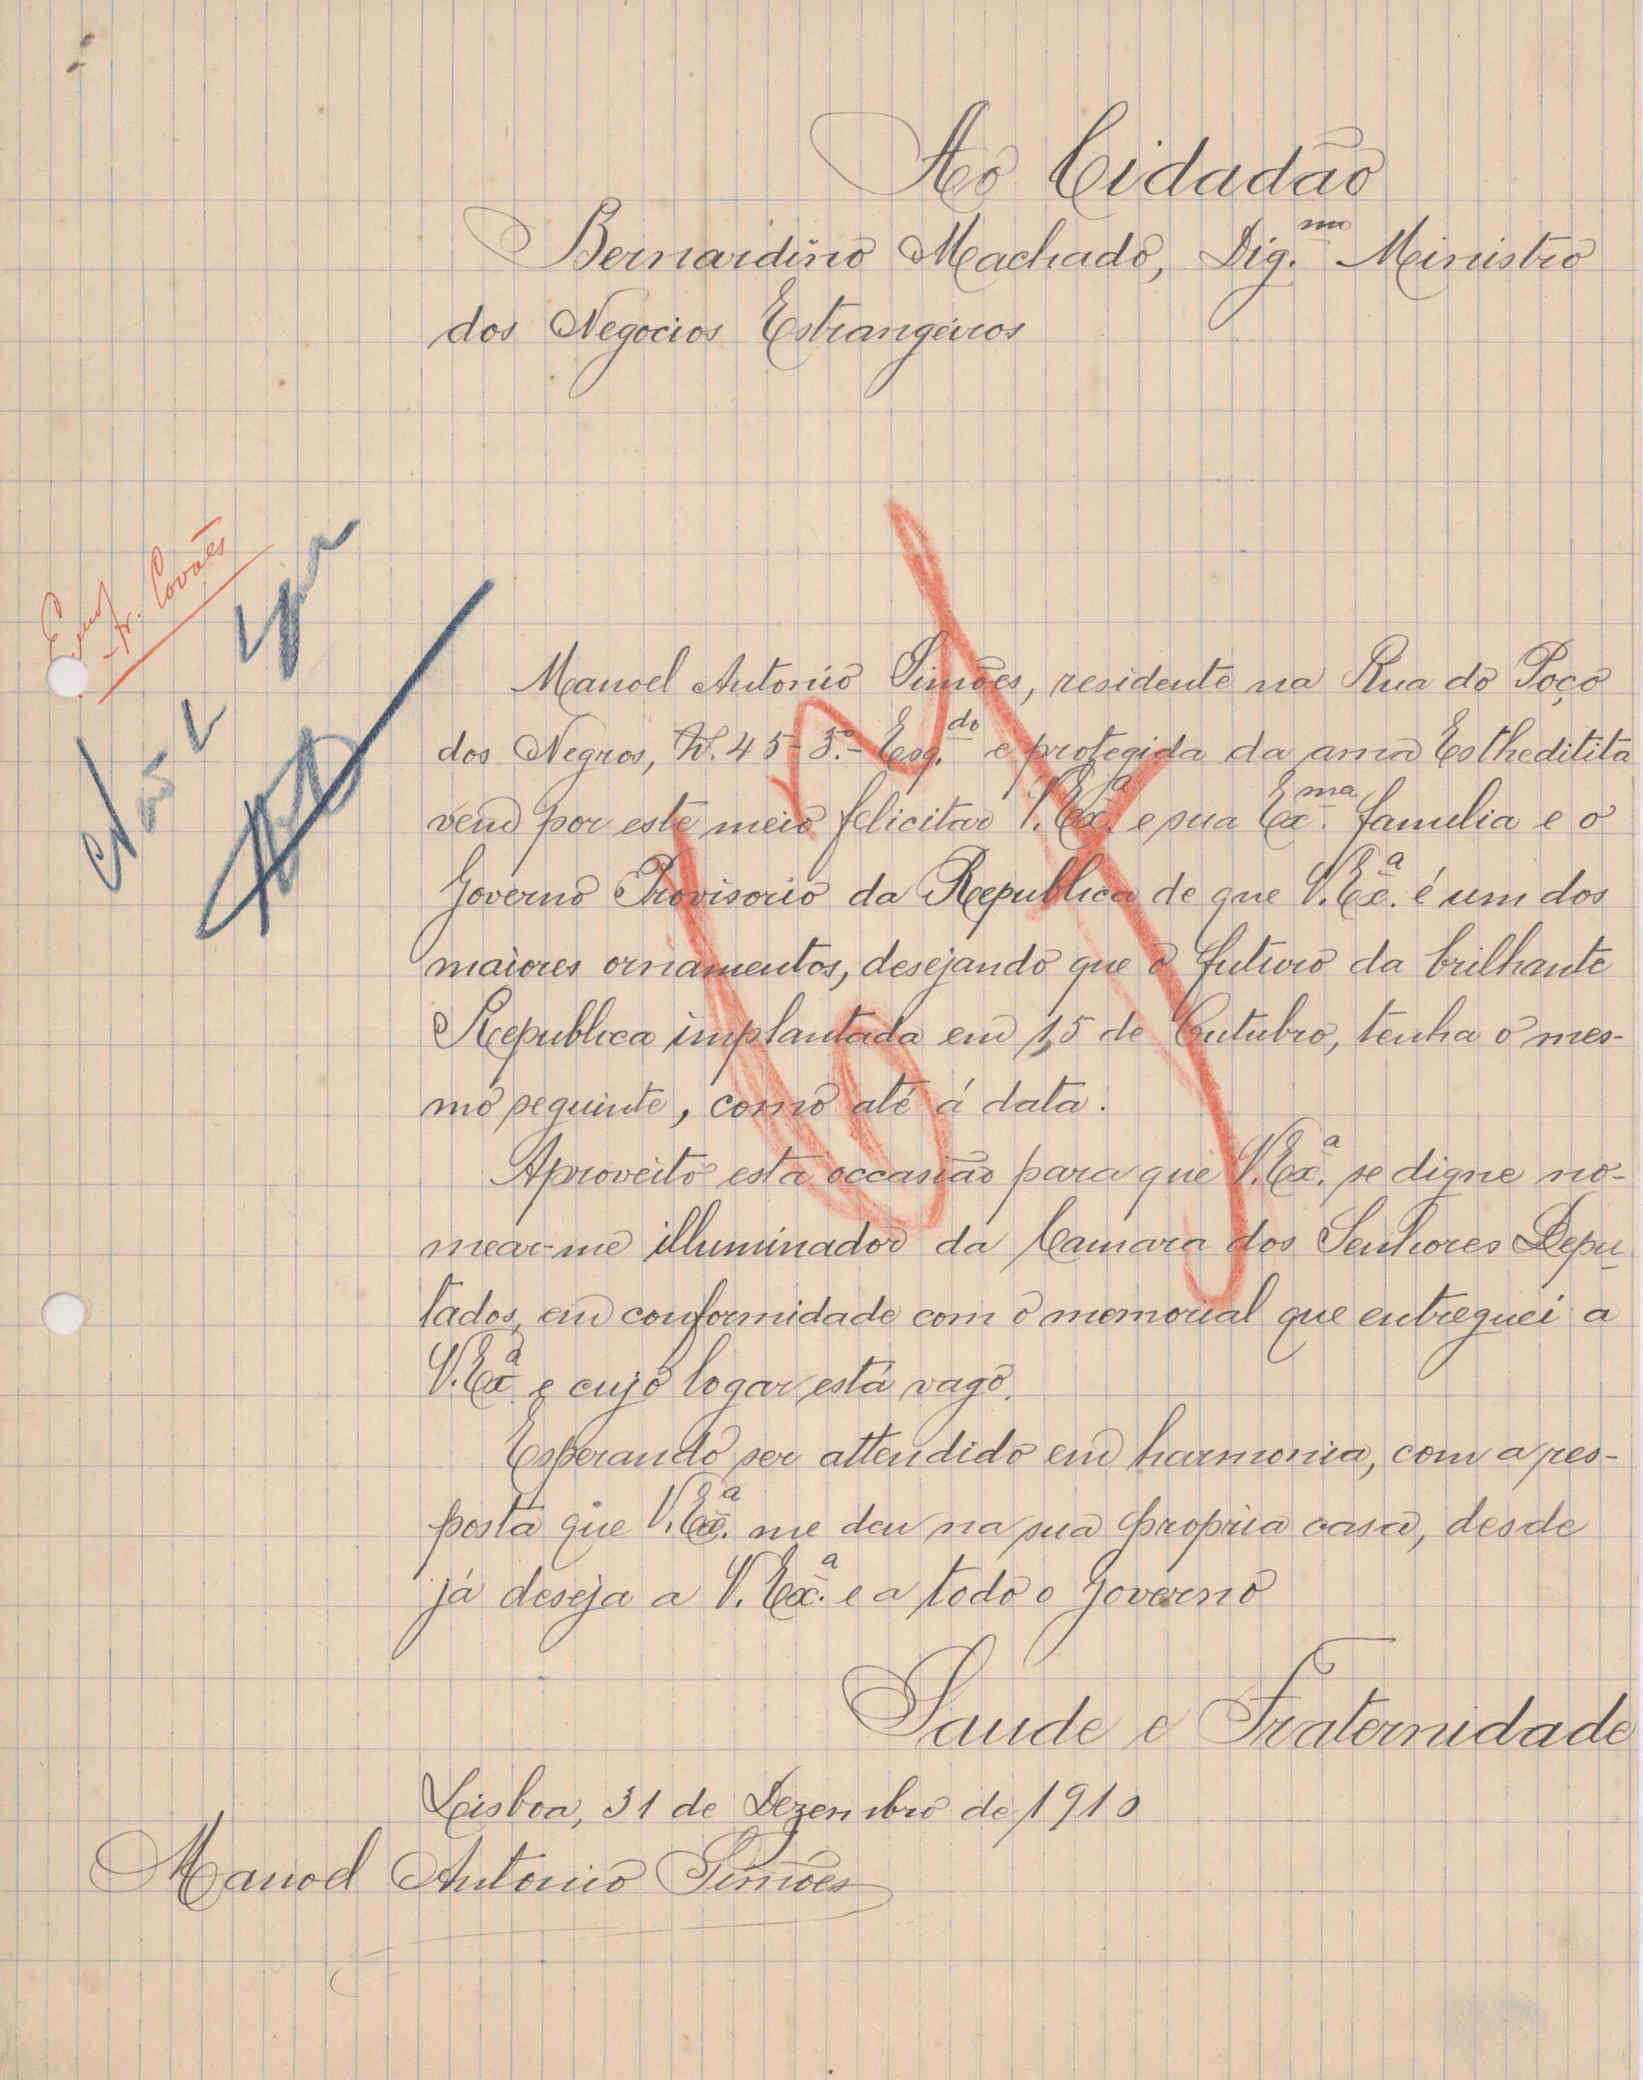 Ao Cidadão
Bernardino Machado, Dig.mo Ministro
dos Negocios Estrangeiros
Manoel Antonio Simões, residente na Rua do Poço
dos Negros, N. 45-3.º- Esq.do e protegida da ama Estheditita
vem por este meio felicitar V. Ex.ª e sua Ex.ma familia e o
Governo Provisorio da Republica de que V. Ex.ª é um dos
maiores ornamentos, desejando que o futuro da brilhante
Republica implantada em 1,5 de Outubro, tenha o mes-
mo seguinte, como até á data.
Aproveito esta occasião para que V. Ex.ª se digne no-
mear-me illuminador da Camara dos Senhores Depu-
tados, em conformidade com o memorial que entreguei a
V. Ex.ª e cujo logar está vago.
Esperando ser attendido em harmonia, com a res-
posta que V. Ex.ª me deu na sua propria casa, desde
já deseja a V. Ex.ª e a todo o governo
Saude e Fraternidade
Lisboa, 31 de Dezembro de 1910
Manoel Antonio Simões